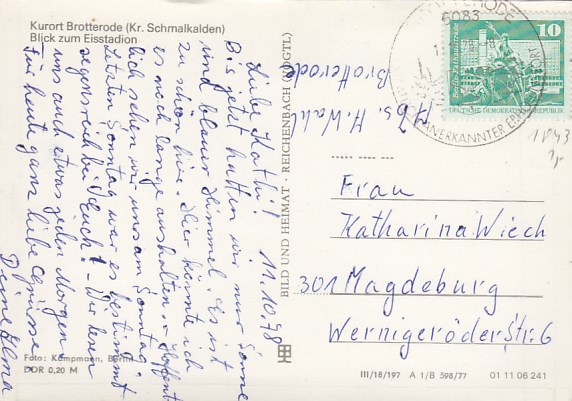 Kurort Brotterode (Kr. Schmalkalden)
Blick zum Eisstadion
11.10.78
Liebe Kathi!
Bis jetzt hatten wir nur Sonne
und blauer Himmel. Es ist
zu schön hier. Hier könnte ich
es noch lange aushalten. Hoffent
lich sehen wir uns am Sonntag.
Letzten Sonntag war es bestimmt
segensreich bei Euch! - Wir hören
uns auch etwas jeden Morgen
Für heute ganz liebe Grüsse
Deine Elma
Foto: Kampmann, Berlin
DDR 0,20 M
BILD UND HEIMAT · REICHENBACH (VOGTL)
H. Wahl
Brotterode
6083
10
DEUTSCHE DEMOKRATISCHE REPUBLIK
ANERKANNTER
1843
Frau
Katharina Wiech
301 Magdeburg
Wernigeröder Str. 6
III/18/197 A 1/B 598/77 01 11 06 241